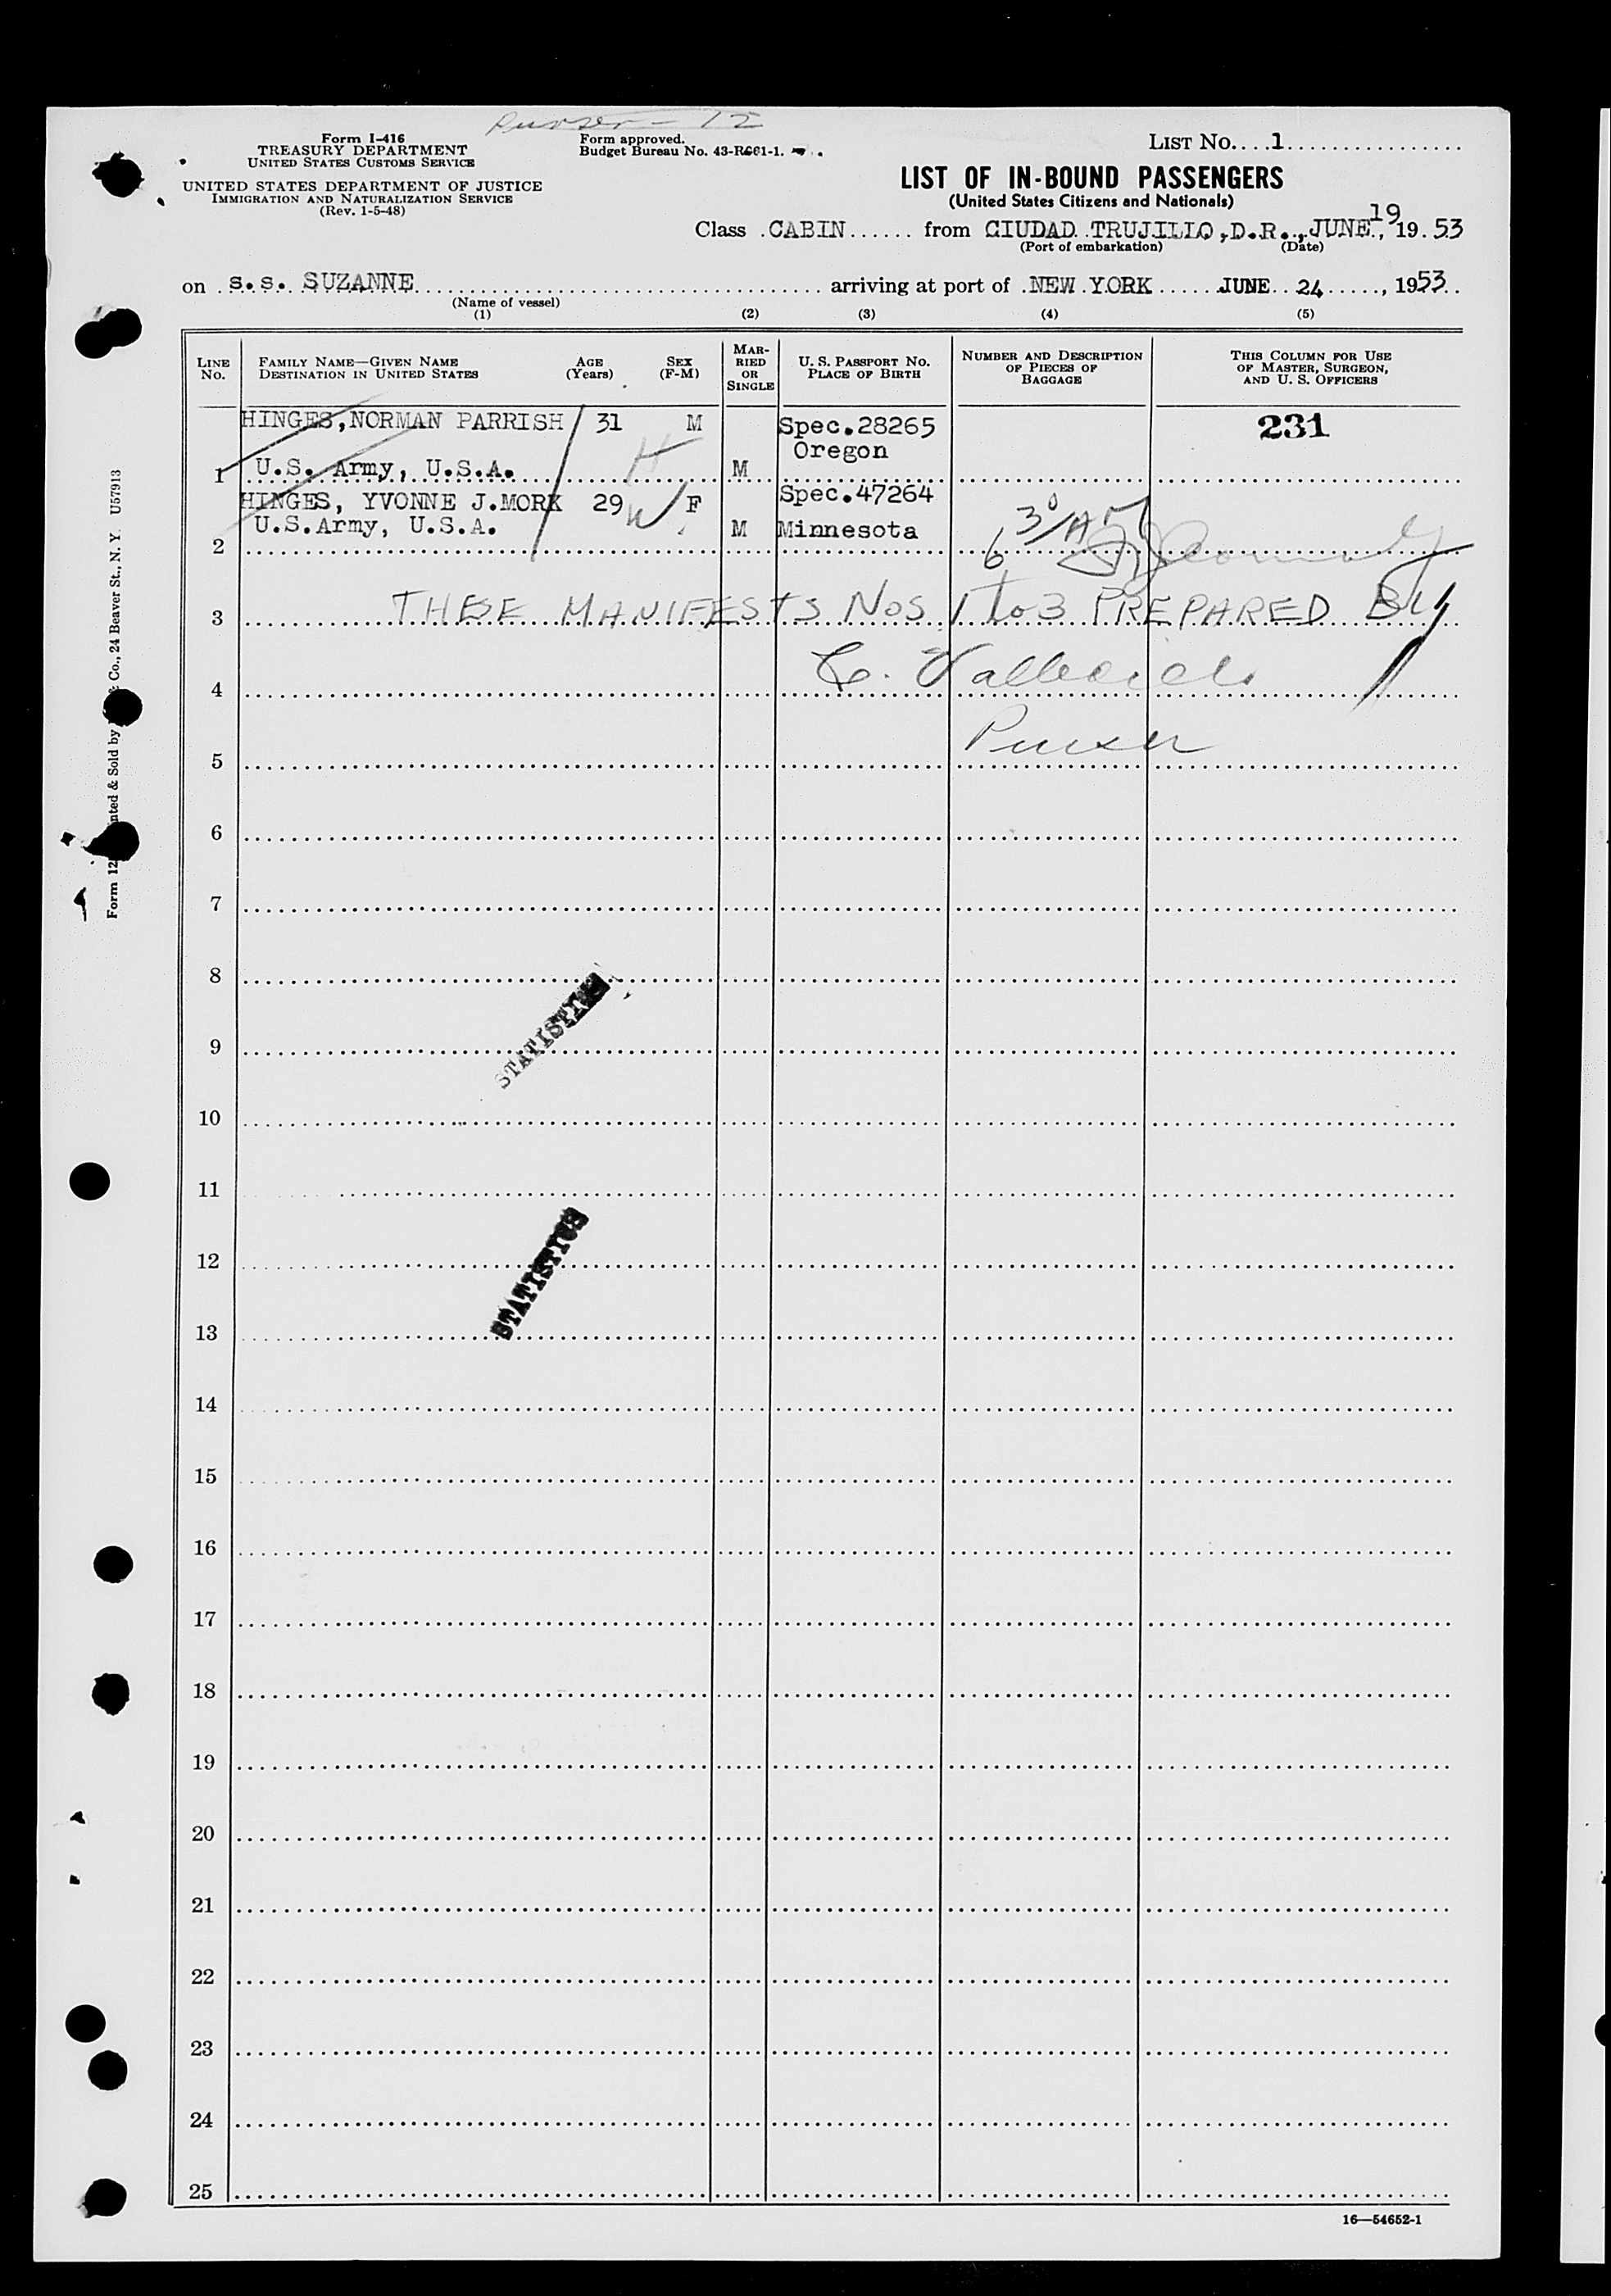 Purser - 12
Form I-416
TREASURY DEPARTMENT
UNITED STATES CUSTOMS SERVICE
UNITED STATES DEPARTMENT OF JUSTICE
IMMIGRATION AND NATURALIZATION SERVICE
(Rev. 1-5-48)
Form approved.
Budget Bureau No. 43-R661-1.
LIST No....1
LIST OF IN-BOUND PASSENGERS
(United States Citizens and Nationals)
Class CABIN from CIUDAD TRUJILLO, D.R., JUNE 19, 19.53
(Port of embarkation) (Date)
on S.S. SUZANNE arriving at port of NEW YORK JUNE 24, 1953
(Name of vessel)
(1) (2) (3) (4) (5)
LINE No.
FAMILY NAME—GIVEN NAME
DESTINATION IN UNITED STATES
AGE (Years)
SEX (F-M)
MARRIED OR SINGLE
U. S. PASSPORT No.
PLACE OF BIRTH
NUMBER AND DESCRIPTION OF PIECES OF BAGGAGE
THIS COLUMN FOR USE OF MASTER, SURGEON, AND U. S. OFFICERS
HINGES, NORMAN PARRISH 31 M Spec.28265 231
Oregon
1 U.S. Army, U.S.A. M
HINGES, YVONNE J.MORK 29 W F Spec.47264
U.S.Army, U.S.A. M Minnesota
2
3 THESE MANIFESTS NOS 1 to 3 PREPARED By
4
Purser
5
6
7
8
STATISTICS
9
10
11
12
STATISTICS
13
14
15
16
17
18
19
20
21
22
23
24
25
16—54652-1
Co., 24 Beaver St., N. Y. U57913